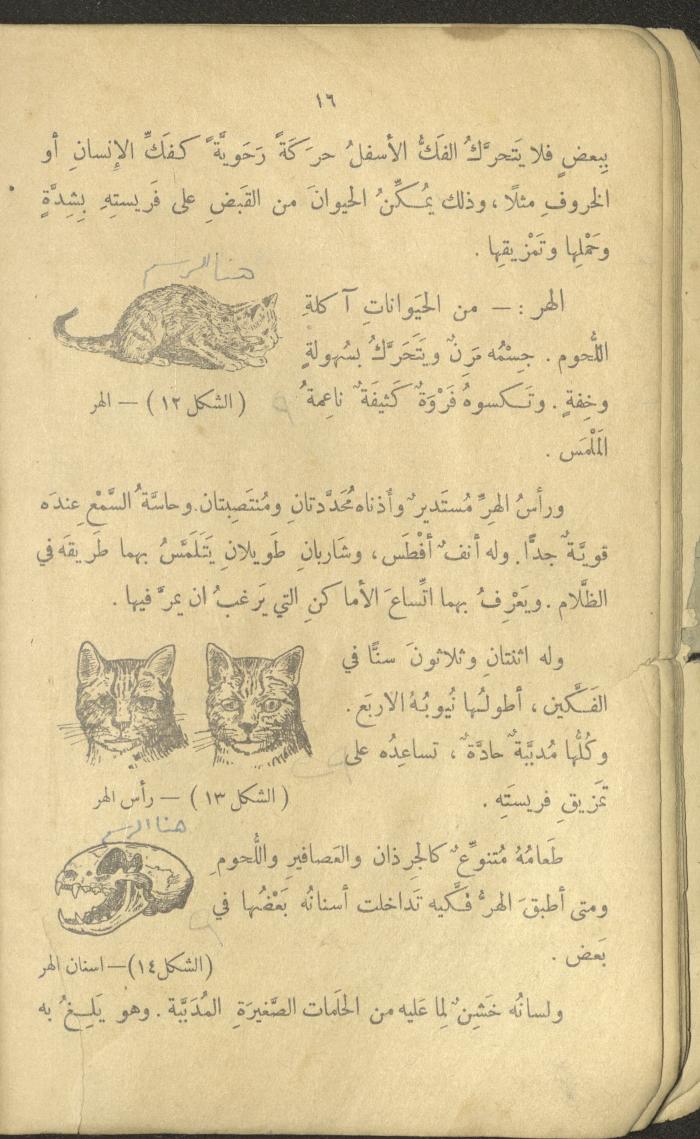 ١٦
بِبعضٍ فلا يَتحرَّكُ الفَكُّ الأسفلُ حرَكَةً رَحَويَّةً كفَكِّ الإنسانِ أو
الخروفِ مثلًا ، وذلك يُمكِّنُ الحيوانَ من القَبضِ على فَريستِهِ بِشِدَّةٍ
وحَمْلِها وتَمْزيقِها .
هنا الرسم
الهر : — من الحَيَواناتِ آكلةِ
اللُّحوم . جِسْمُه مَرِنٌ ويَتَحَرَّكُ بسُهولةٍ
وخِفةٍ . وتَكسوهُ فَرْوَةٌ كَثيفَةٌ ناعِمةُ
(الشكل ١٢) — الهر
المَلْمَس .
ورأسُ الهِرِّ مُستَديرٌ وأذناه مُحَدَّدتانِ ومُنتَصِبتان. وحاسَّةُ السَّمْعِ عِندَه
قويَّةٌ جدًّا . وله أنفٌ أفْطَس ، وشاربانِ طَويلانِ يَتَلَمَّسُ بهما طَريقَه في
الظَّلام . ويَعْرِفُ بهما اتِّساعَ الأماكنِ التي يَرغبُ ان يمرَّ فيها .
وله اثنتانِ وثلاثونَ سنًّا في
الفَكَّين ، أطولُها نُيوبُهُ الاربَع .
وكُلُّها مُدبَّبةٌ حادَّةٌ ، تساعِدُه على
تمزيقِ فريستَهِ .
(الشكل ١٣) — رأس الهر
هنا الرسم
طَعامُهُ مُتنوِّعٌ كالجرذان والعَصافيرِ واللُّحومِ
ومتى أطبقَ الهرُّ فَكَّيه تَداخلت أسنانُه بَعْضُها في
بَعض .
(الشكل ١٤) — اسنان الهر
ولسانُه خَشِنٌ لِما عَليه من الحَلَمات الصَّغيرَةِ المُدَبَّبة . وهو يَلِغُ به